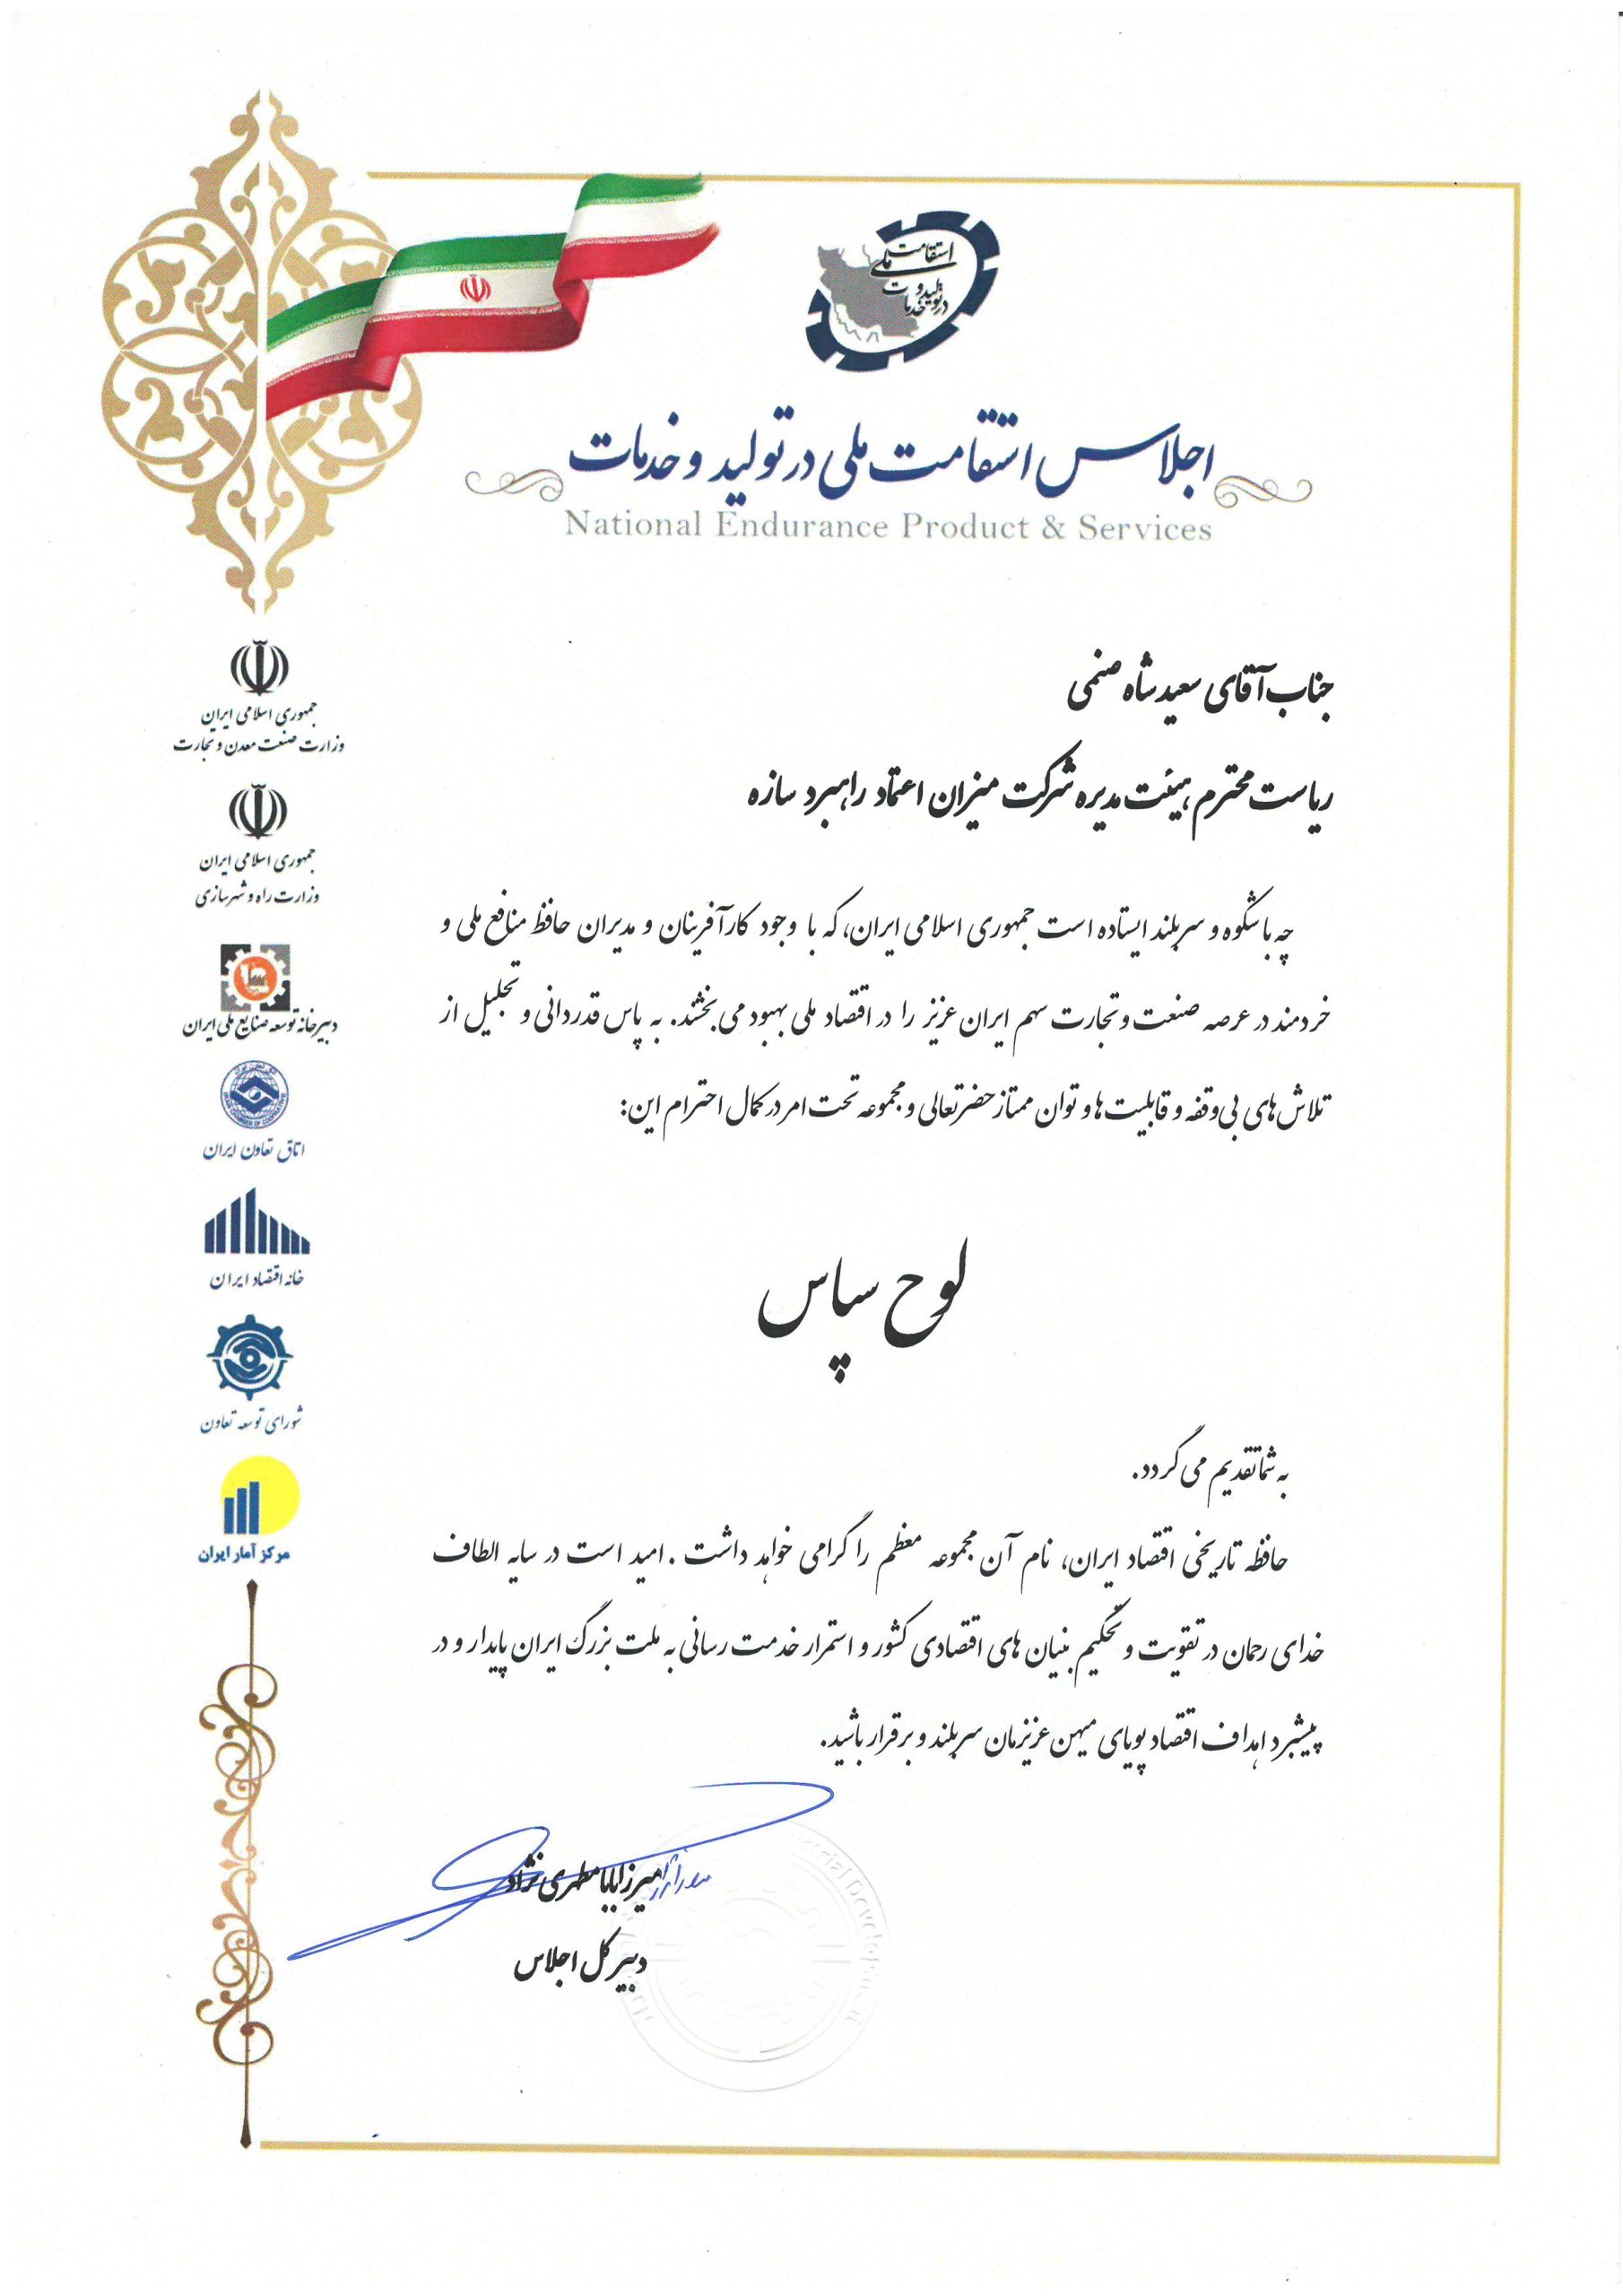 استقامت
ملی
در تولید و
خدمات
اجلاس استقامت ملی در تولید و خدمات
National Endurance Product & Services
جناب آقای سعید شاه صنمی
ریاست محترم هیئت مدیره شرکت میزان اعتماد راهبرد سازه
چه باشکوه و سربلند ایستاده است جمهوری اسلامی ایران، که با وجود کارآفرینان و مدیران حافظ منافع ملی و
خردمند در عرصه صنعت و تجارت سهم ایران عزیز را در اقتصاد ملی بهبود می بخشند. به پاس قدردانی و تجلیل از
تلاش های بی وقفه و قابلیت ها و توان ممتاز حضرتعالی و مجموعه تحت امر در کمال احترام این:
لوح سپاس
به شما تقدیم می گردد.
حافظه تاریخی اقتصاد ایران، نام آن مجموعه معظم را گرامی خواهد داشت . امید است در سایه الطاف
خدای رحمان در تقویت و تحکیم بنیان های اقتصادی کشور و استمرار خدمت رسانی به ملت بزرگ ایران پایدار و در
پیشبرد اهداف اقتصاد پویای میهن عزیزمان سربلند و برقرار باشید.
میرزابابا مطهری نژاد
دبیر کل اجلاس
جمهوری اسلامی ایران
وزارت صنعت معدن و تجارت
جمهوری اسلامی ایران
وزارت راه و شهرسازی
دبیرخانه توسعه صنایع ملی ایران
اتاق تعاون ایران
خانه اقتصاد ایران
شورای توسعه تعاون
مرکز آمار ایران